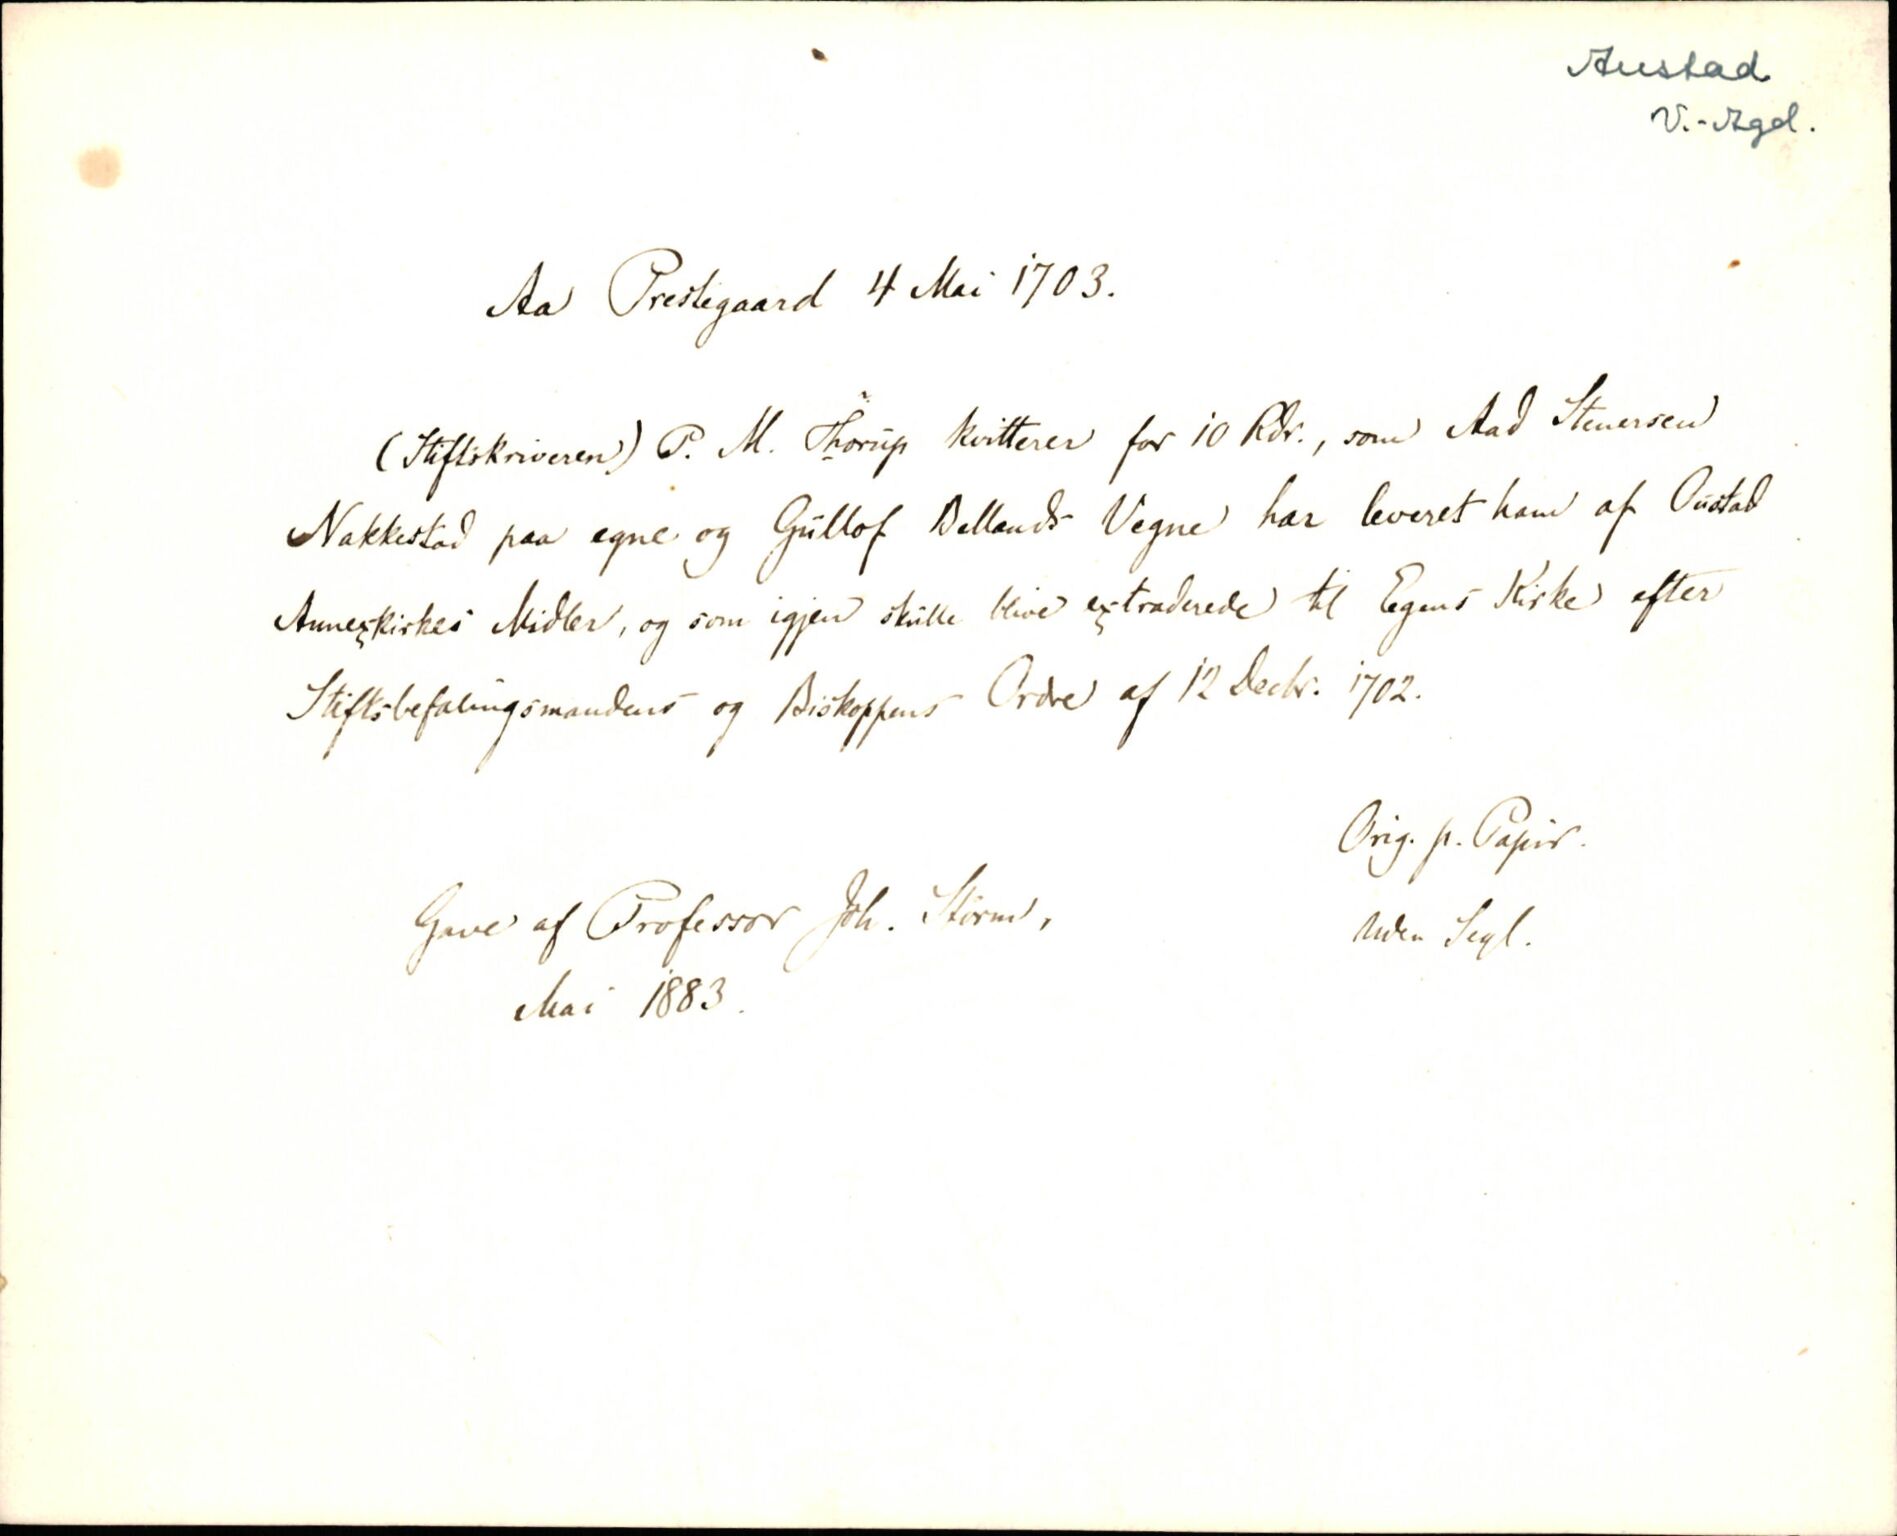 Austad
V.-Agd.
Aa Prestegaard 4 Mai 1703.
(Stiftskriveren) P. M. Thorup kvitterer for 10 Rdr., som Aad Stenersen
Nakkestad paa egne og Gullof Bellands Vegne har leveret ham af Oustad
Annexkirkes Midler, og som igjen skulle blive extraderede til Egens Kirke efter
Stiftsbefalingsmandens og Biskoppens Ordre af 12 Decbr. 1702.
Orig. p. Papir.
Uden Segl.
Gave af Professor Joh. Storm,
Mai 1883.